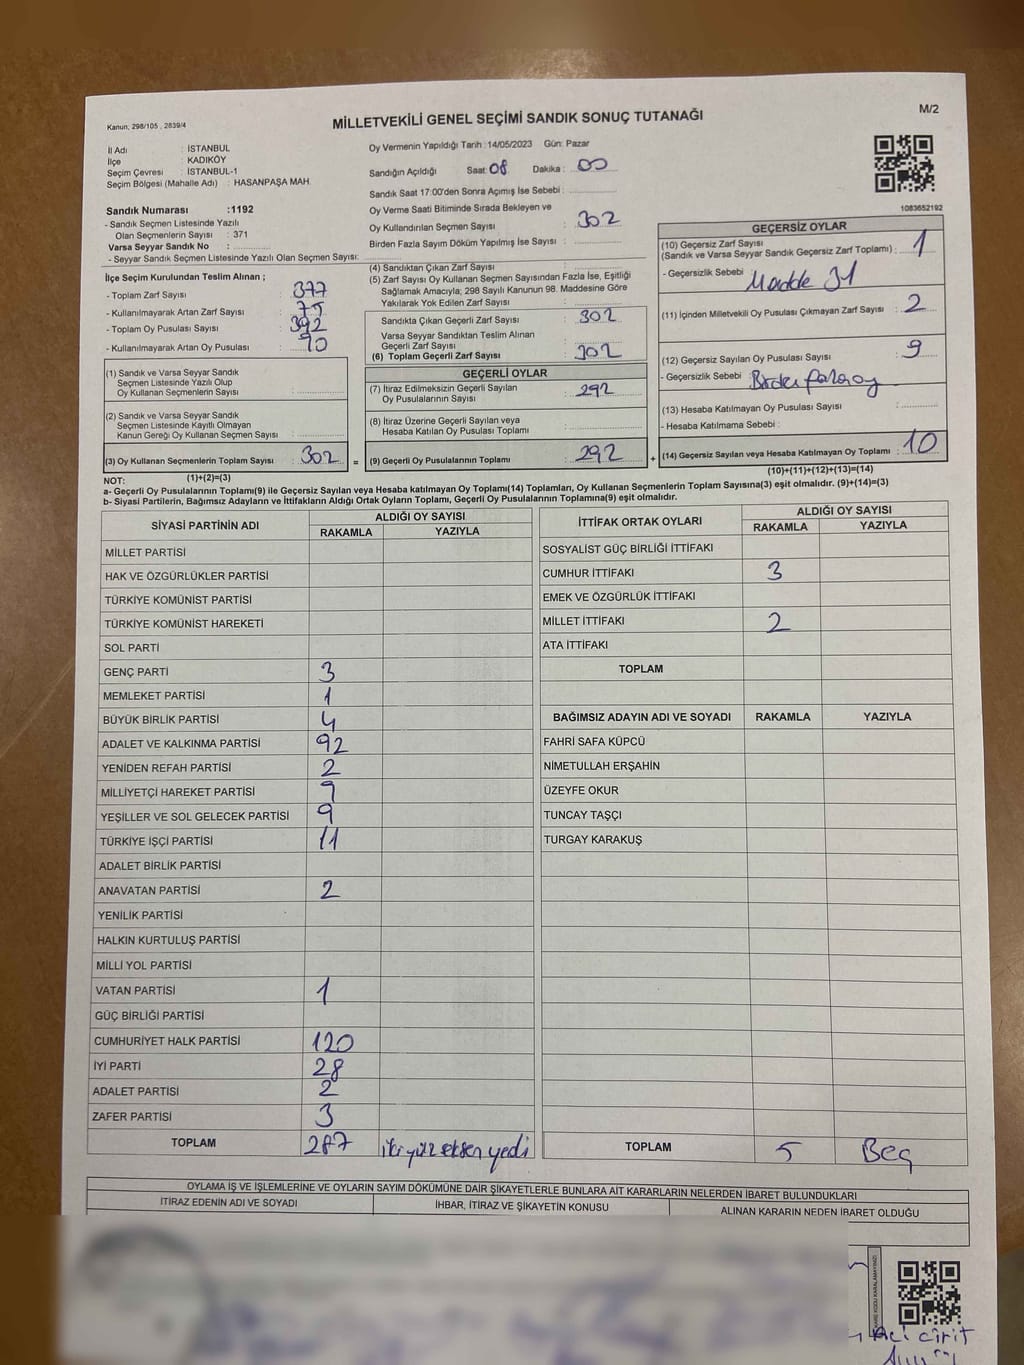 Kanun, 298/105 , 2839/4
MİLLETVEKİLİ GENEL SEÇİMİ SANDIK SONUÇ TUTANAĞI
M/2
İl Adı : İSTANBUL
İlçe : KADIKÖY
Seçim Çevresi : İSTANBUL-1
Seçim Bölgesi (Mahalle Adı) : HASANPAŞA MAH.
Sandık Numarası :1192
- Sandık Seçmen Listesinde Yazılı
Olan Seçmenlerin Sayısı : 371
Varsa Seyyar Sandık No :
- Seyyar Sandık Seçmen Listesinde Yazılı Olan Seçmen Sayısı:
İlçe Seçim Kurulundan Teslim Alınan ;
- Toplam Zarf Sayısı : 377
- Kullanılmayarak Artan Zarf Sayısı : 75
- Toplam Oy Pusulası Sayısı : 392
- Kullanılmayarak Artan Oy Pusulası : 90
(1) Sandık ve Varsa Seyyar Sandık
Seçmen Listesinde Yazılı Olup
Oy Kullanan Seçmenlerin Sayısı :
(2) Sandık ve Varsa Seyyar Sandık
Seçmen Listesinde Kayıtlı Olmayan
Kanun Gereği Oy Kullanan Seçmen Sayısı :
(3) Oy Kullanan Seçmenlerin Toplam Sayısı : 302 =
Oy Vermenin Yapıldığı Tarih :14/05/2023 Gün: Pazar
Sandığın Açıldığı Saat: 08 Dakika : 00
Sandık Saat 17:00'den Sonra Açımış İse Sebebi :
Oy Verme Saati Bitiminde Sırada Bekleyen ve
Oy Kullandırılan Seçmen Sayısı : 302
Birden Fazla Sayım Döküm Yapılmış İse Sayısı :
(4) Sandıktan Çıkan Zarf Sayısı :
(5) Zarf Sayısı Oy Kullanan Seçmen Sayısından Fazla İse, Eşitliği
Sağlamak Amacıyla; 298 Sayılı Kanunun 98. Maddesine Göre
Yakılarak Yok Edilen Zarf Sayısı :
Sandıkta Çıkan Geçerli Zarf Sayısı : 302
Varsa Seyyar Sandıktan Teslim Alınan
Geçerli Zarf Sayısı :
(6) Toplam Geçerli Zarf Sayısı : 302
GEÇERLİ OYLAR
(7) İtiraz Edilmeksizin Geçerli Sayılan
Oy Pusulalarının Sayısı : 292
(8) İtiraz Üzerine Geçerli Sayılan veya
Hesaba Katılan Oy Pusulası Toplamı :
(9) Geçerli Oy Pusulalarının Toplamı : 292 +
1083652192
GEÇERSİZ OYLAR
(10) Geçersiz Zarf Sayısı
(Sandık ve Varsa Seyyar Sandık Geçersiz Zarf Toplamı) : 1
- Geçersizlik Sebebi : Madde 31
(11) İçinden Milletvekili Oy Pusulası Çıkmayan Zarf Sayısı : 2
(12) Geçersiz Sayılan Oy Pusulası Sayısı : 9
- Geçersizlik Sebebi :
(13) Hesaba Katılmayan Oy Pusulası Sayısı :
- Hesaba Katılmama Sebebi :
(14) Geçersiz Sayılan veya Hesaba Katılmayan Oy Toplamı : 10
NOT: (1)+(2)=(3) (10)+(11)+(12)+(13)=(14)
a- Geçerli Oy Pusulalarının Toplamı(9) ile Geçersiz Sayılan veya Hesaba katılmayan Oy Toplamı(14) Toplamları, Oy Kullanan Seçmenlerin Toplam Sayısına(3) eşit olmalıdır. (9)+(14)=(3)
b- Siyasi Partilerin, Bağımsız Adayların ve İttifakların Aldığı Ortak Oyların Toplamı, Geçerli Oy Pusulalarının Toplamına(9) eşit olmalıdır.
SİYASİ PARTİNİN ADI ALDIĞI OY SAYISI
RAKAMLA YAZIYLA
MİLLET PARTİSİ
HAK VE ÖZGÜRLÜKLER PARTİSİ
TÜRKİYE KOMÜNİST PARTİSİ
TÜRKİYE KOMÜNİST HAREKETİ
SOL PARTİ
GENÇ PARTİ 3
MEMLEKET PARTİSİ 1
BÜYÜK BİRLİK PARTİSİ 4
ADALET VE KALKINMA PARTİSİ 92
YENİDEN REFAH PARTİSİ 2
MİLLİYETÇİ HAREKET PARTİSİ 9
YEŞİLLER VE SOL GELECEK PARTİSİ 9
TÜRKİYE İŞÇİ PARTİSİ 11
ADALET BİRLİK PARTİSİ
ANAVATAN PARTİSİ 2
YENİLİK PARTİSİ
HALKIN KURTULUŞ PARTİSİ
MİLLİ YOL PARTİSİ
VATAN PARTİSİ 1
GÜÇ BİRLİĞİ PARTİSİ
CUMHURİYET HALK PARTİSİ 120
İYİ PARTİ 28
ADALET PARTİSİ 2
ZAFER PARTİSİ 3
TOPLAM 287 ikiyüz seksen yedi
İTTİFAK ORTAK OYLARI ALDIĞI OY SAYISI
RAKAMLA YAZIYLA
SOSYALİST GÜÇ BİRLİĞİ İTTİFAKI
CUMHUR İTTİFAKI 3
EMEK VE ÖZGÜRLÜK İTTİFAKI
MİLLET İTTİFAKI 2
ATA İTTİFAKI
TOPLAM
BAĞIMSIZ ADAYIN ADI VE SOYADI RAKAMLA YAZIYLA
FAHRİ SAFA KÜPCÜ
NİMETULLAH ERŞAHİN
ÜZEYFE OKUR
TUNCAY TAŞÇI
TURGAY KARAKUŞ
TOPLAM 5 Beş
OYLAMA İŞ VE İŞLEMLERİNE VE OYLARIN SAYIM DÖKÜMÜNE DAİR ŞİKAYETLERLE BUNLARA AİT KARARLARIN NELERDEN İBARET BULUNDUKLARI
İTİRAZ EDENİN ADI VE SOYADI İHBAR, İTİRAZ VE ŞİKAYETİN KONUSU ALINAN KARARIN NEDEN İBARET OLDUĞU